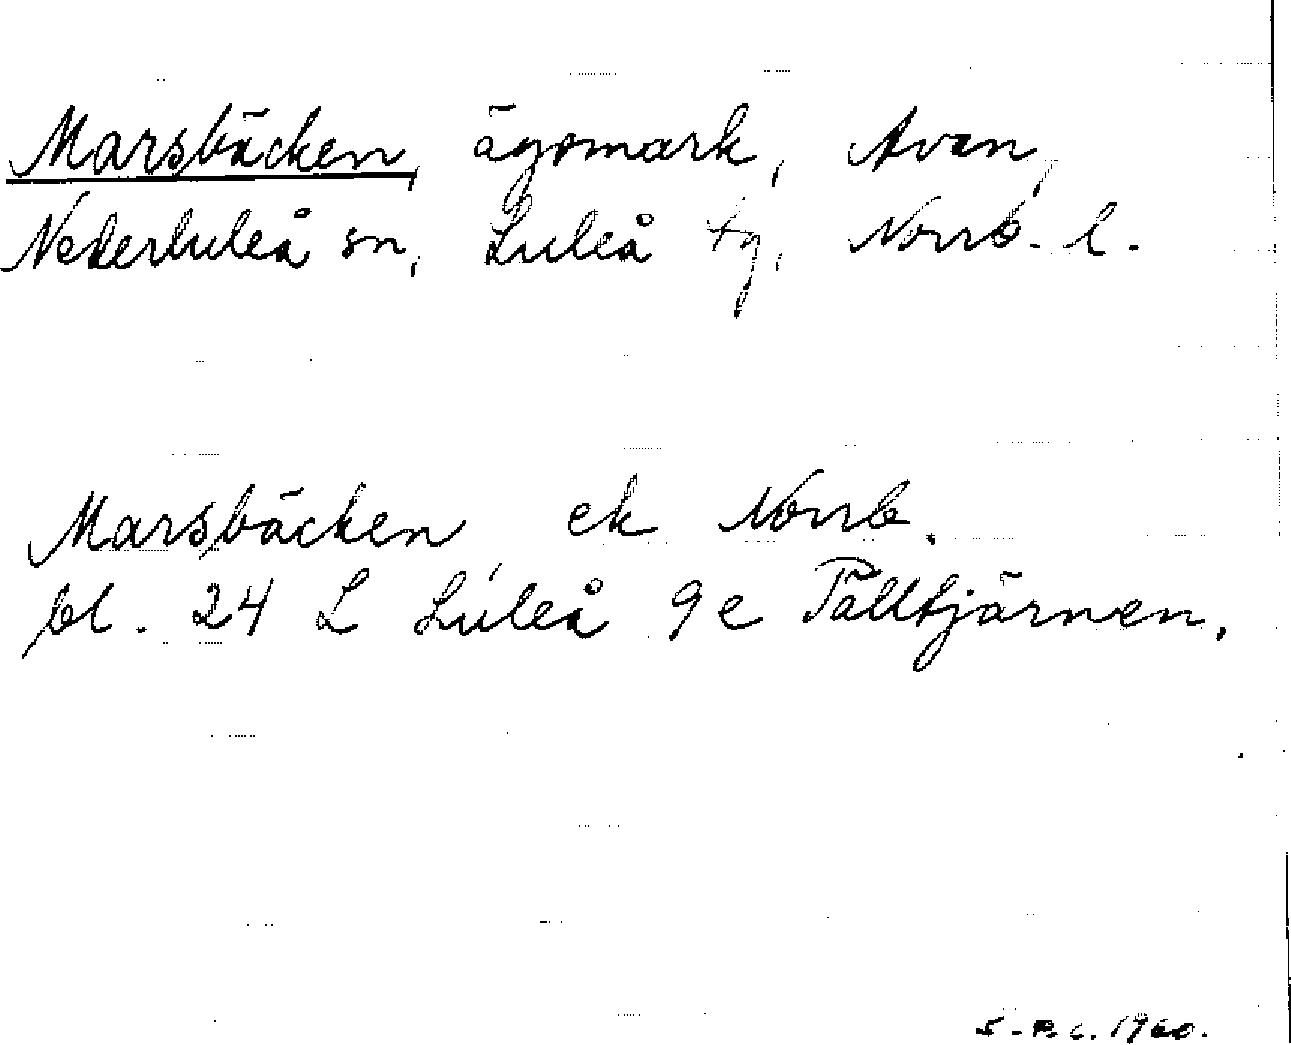 Marsbäcken, ägomark, Avan,
Nederluleå sn, Luleå tg, Norrb. l.
Marsbäcken ek Norrb.
bl. 24 L Luleå 9e Pålltjärnen.
1960.